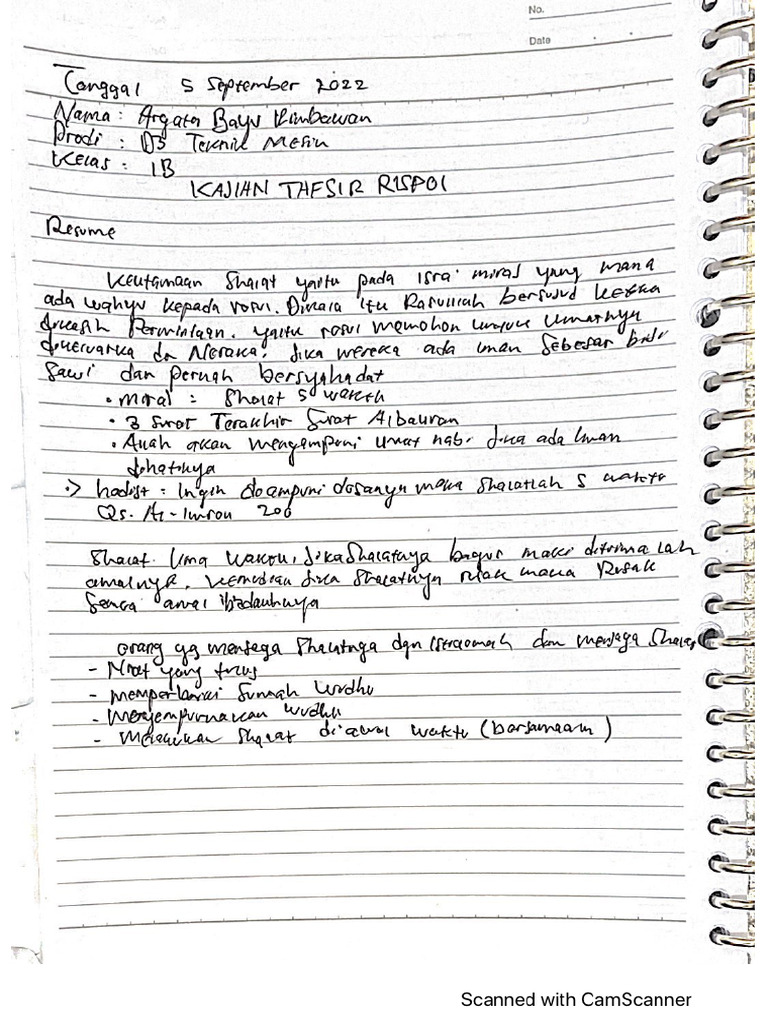 No.
Date
Tanggal 5 September 2022
Nama : Argata Bayu Rimbawan
Prodi : D3 Teknik Mesin
Kelas : 1B
KAJIAN THFSIR RISPOI
Resume
Keutamaan Shalat yaitu pada Isra' miraj yang mana
ada wahyu kepada rosul. Dimana itu Rasullah bersujud ketika
dikasih Permintaan. yaitu rosul memohon untuk umatnya
dikeluarka dr Neraka. Jika mereka ada iman sebesar biji
sawi dan pernah bersyahadat
• miraj : Shalat 5 waktu
• 3 Surat Terakhir Surat Albauran
• Allah akan mengampuni umat nabi jika ada iman
dihatinya
:> hadist : Ingin diampuni dosanya maka Shalatlah 5 waktu
Qs. Al-Imron 200
Shalat lima waktu, Jika Shalatnya bagus maka diterima lah
amalnya, kemudian jika Shalatnya rusak maka Rusak
semua amal ibadauhnya
orang yg menjaga Shalatnya dgn istiqomah dan menjaga Shalat
- Niat yang fokus
- memperbaiki Sunnah Wudhu
- Menyempurnakan wudhu
- Melakukan Shalat diawal waktu (bersamaan)
Scanned with CamScanner